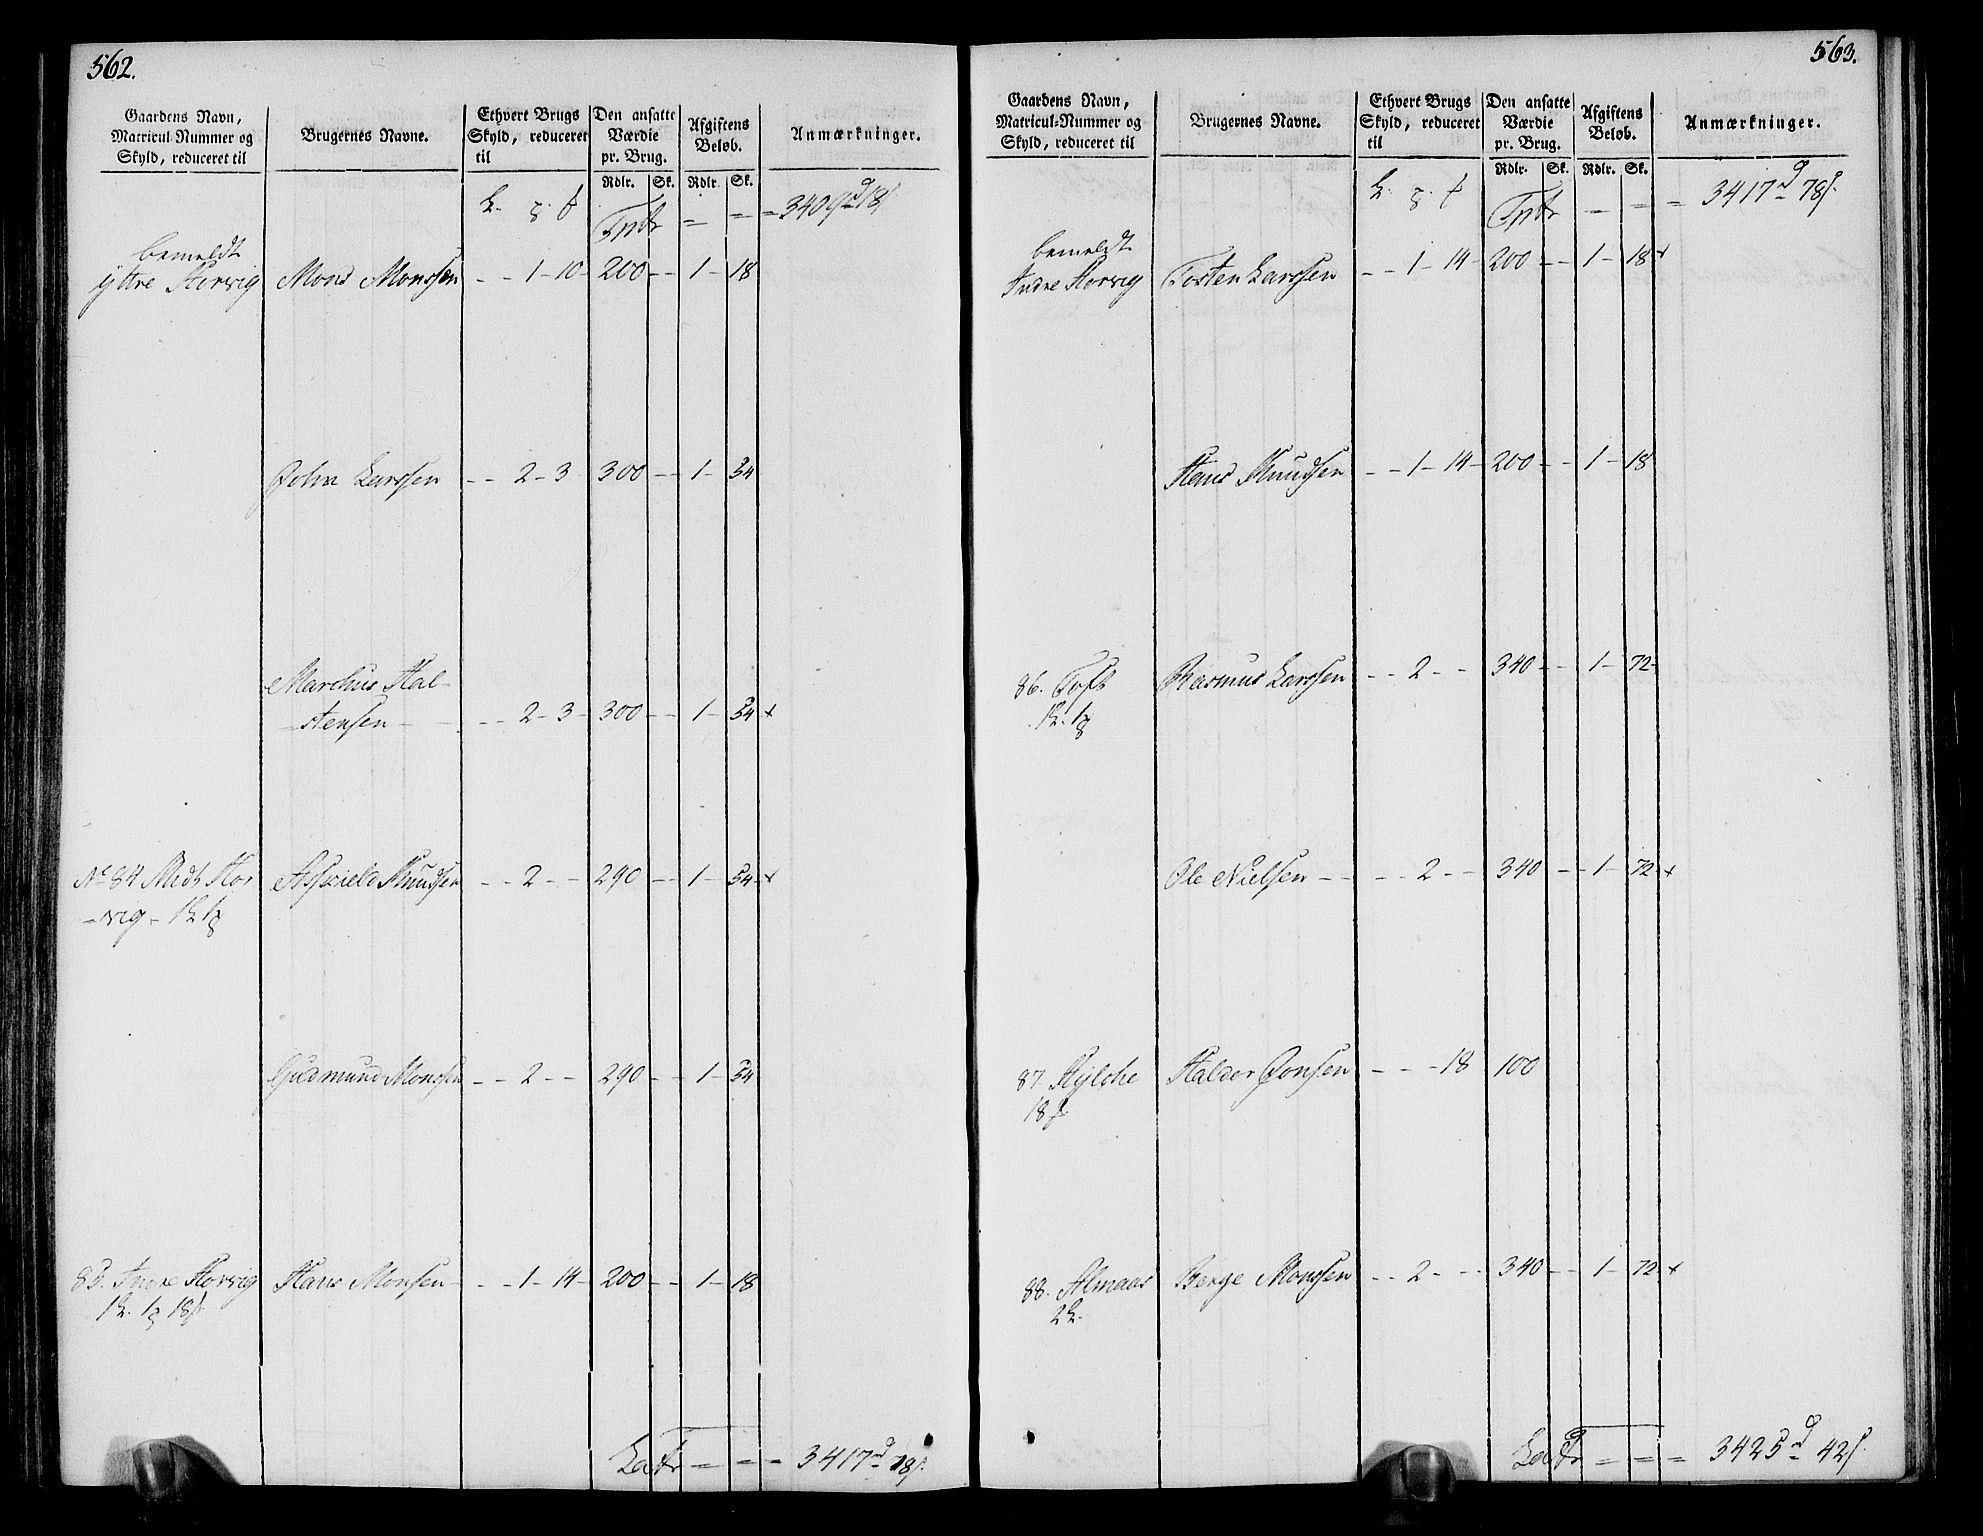 562.
Gaardens Navn, Matricul-Nummer og Skyld, reduceret til
Brugernes Navne.
Ethvert Brugs Skyld, reduceret til
Den ansatte Værdie pr. Brug.
Afgiftens Beløb.
Anmærkninger.
Rdlr. Sk. Rdlr. Sk.
Tptr = = = 3409d 18s
bemeldt
Yttre Horvig Mons Monssen - - 1 - 10 - 200 - - 1 - 18
John Larssen - - 2 - 3 300 - - 1 - 54
Marchus Hal-
-stensen - - - 2 - 3 - 300 - - 1 - 54 x
No 84 Midt Hor Asskield Knudsen - - 2 - - 290 - - 1 - 54 - x
-vig - 1
Gudmund Monssen - - 2 - - 290 - - 1 - 54
85. Indre Horvig Hans Monsen - - - 1 - 14 - 200 - - 1 - 18
Latr = = = 3417d 78s.
563.
Gaardens Navn, Matricul-Nummer og Skyld, reduceret til
Brugernes Navne.
Ethvert Brugs Skyld, reduceret til
Den ansatte Værdie pr. Brug.
Afgiftens Beløb.
Anmærkninger.
Rdlr. Sk. Rdlr. Sk.
Tptr = = = 3417d 78s.
bemeldt
Indre Horvig Tosten Larssen - - 1 - 14 - 200 - - 1 - 18 x
Hans Knudsen - - 1 - 14 - 200 - - 1 - 18
86. Toft Rasmus Larssen - - 2 - - 340 - - 1 - 72 -
Ole Nielsen - - - - 2 - - 340 - - 1 - 72 - x
87. Hylche Halder Jonsen - - - 18 100
18
88. Almaas Berge Monssen - - 2 - - - 340 - - 1 - 72 - x
2
Latr = = = 3425d 42s.